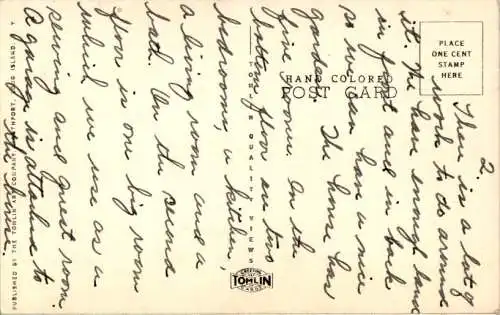 2.
There is a lot of
work to do around
it. We have enough land
in front and in back
so we can have a nice
garden. The house has
five rooms. On the
bottom floor are two
bedrooms, a kitchen,
a living room and a
bath. On the second
floor is one big room
which we use as a
sewing and guest room.
A garage is attached to
the house.
PLACE
ONE CENT
STAMP
HERE
HAND COLORED
POST CARD
TOMLIN QUALITY VIEWS
GREETING
TOMLIN
CARDS
PUBLISHED BY THE TOMLIN ART COMPANY, NORTHPORT, LONG ISLAND,